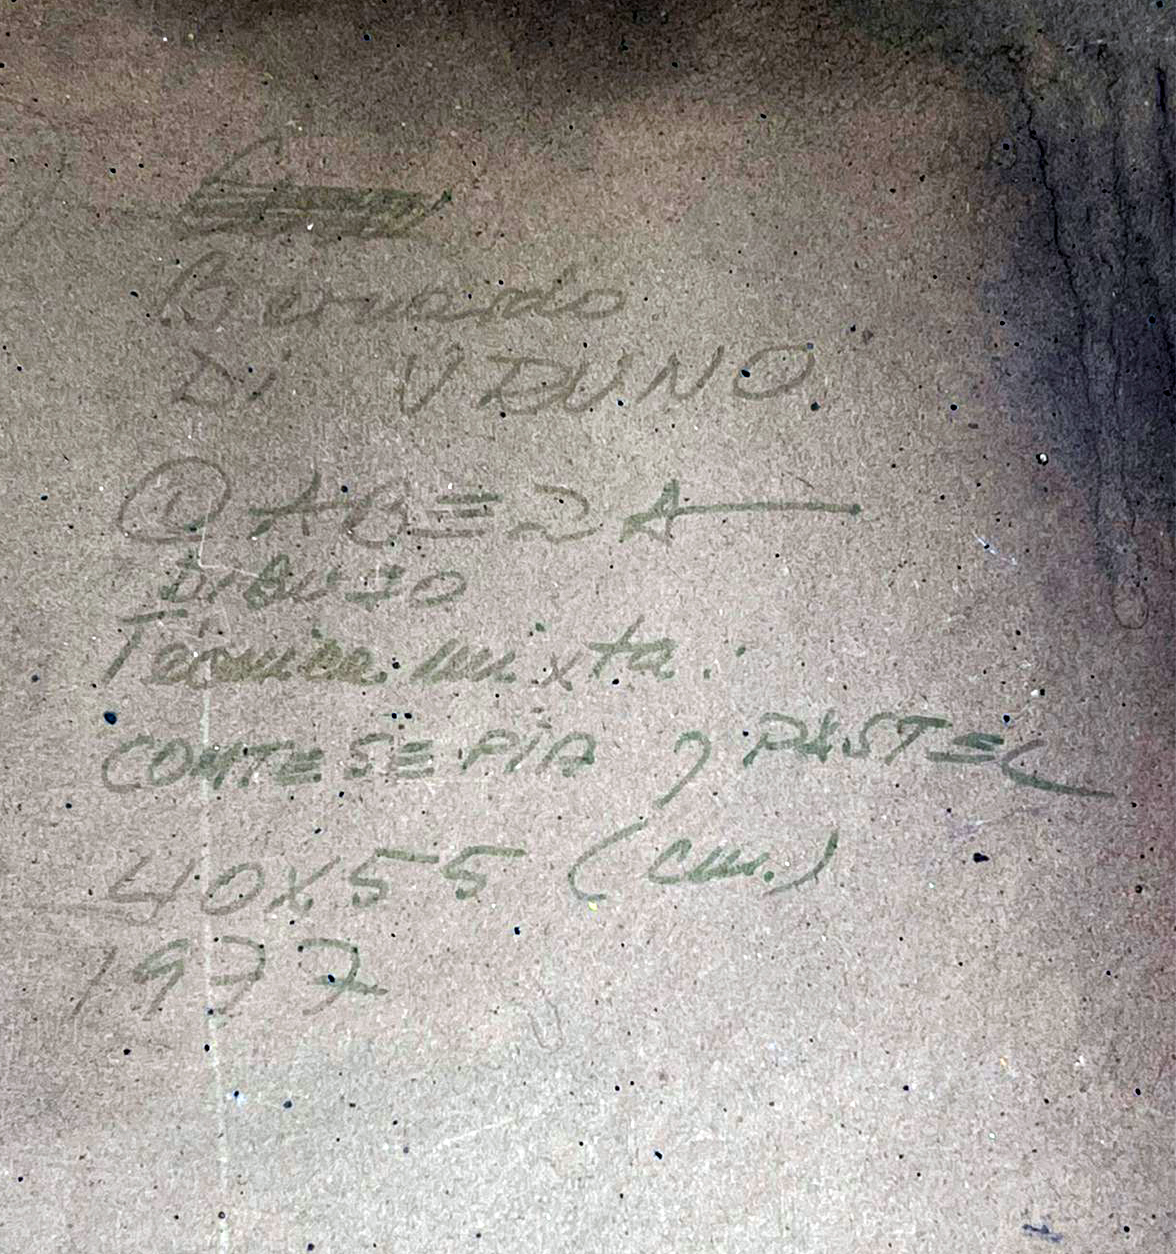 Bernardo
Di VDUNO
CABEZA
DIBUJO
Técnica mixta.
CONTE SEPIA y PASTEL
40X55 (cm.)
1977